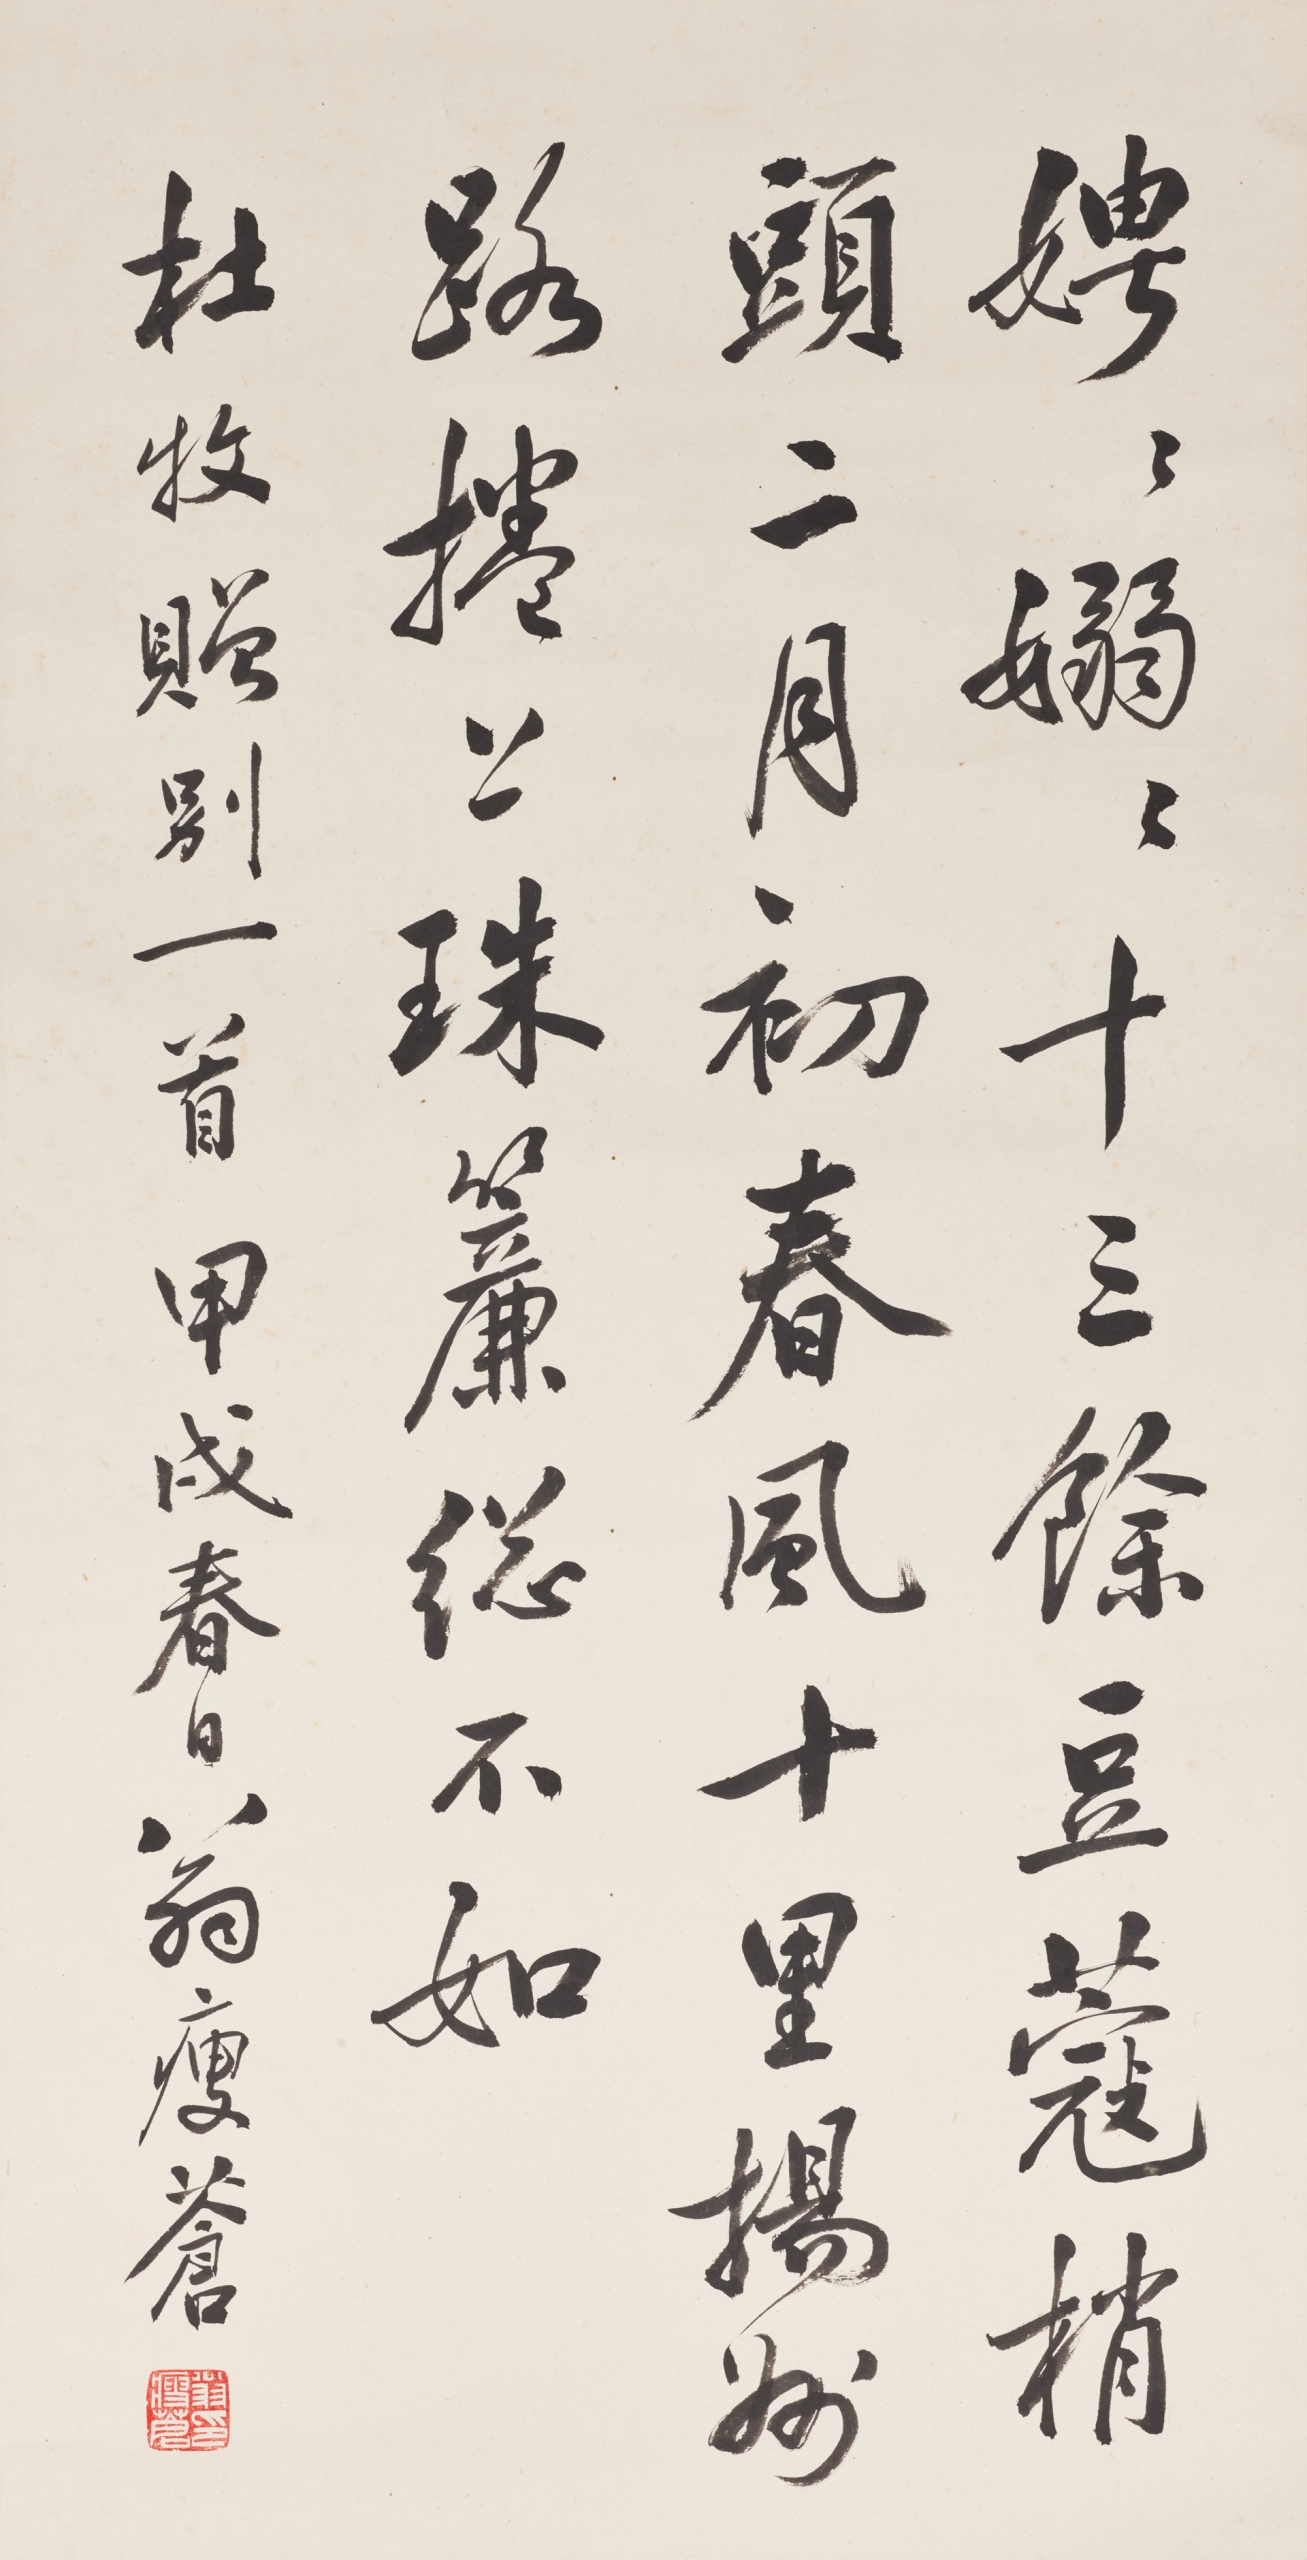 娉〻嫋〻十三餘豆蔻梢
頭二月初春風十里揚州
路捲上珠簾総不如
杜牧贈別一首 甲戌春日 翁瘦蒼
翁瘦蒼印